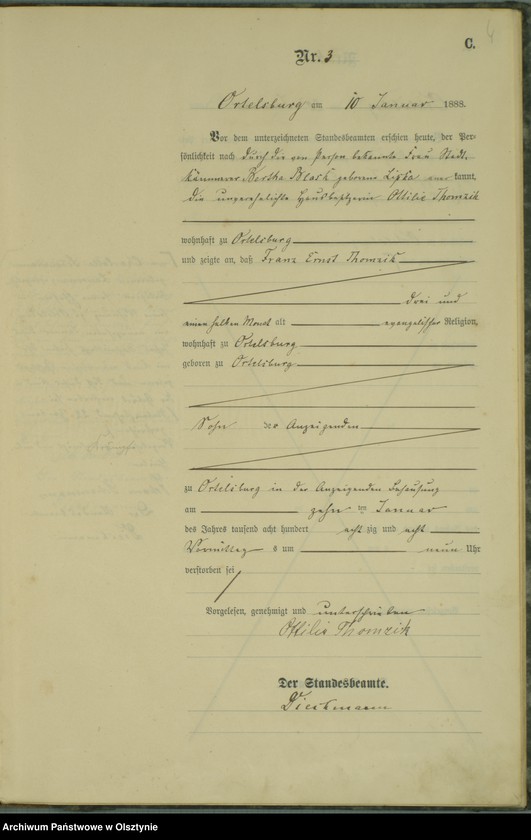 C.
4
Nr. 3
Ortelsburg am 10 Januar 1888.
Vor dem unterzeichneten Standesbeamten erschien heute, der Per-
sönlichkeit nach durch die von Person bekannte Frau Stadt-
kämmerer Bertha Blask geborene Lipka aner kannt,
die unverehelichte Hausbesitzerin Ottilie Thomzik
wohnhaft zu Ortelsburg
und zeigte an, daß Franz Ernst Thomzik
drei und
einen halben Monat alt evangelischer Religion,
wohnhaft zu Ortelsburg
geboren zu Ortelsburg
Sohn der Anzeigenden
zu Ortelsburg in der Anzeigenden Behausung
am zehn ten Januar
des Jahres tausend acht hundert acht zig und acht
Vormittag s um neun Uhr
verstorben sei
Vorgelesen, genehmigt und unterschrieben
Ottilie Thomzik
Der Standesbeamte.
Archiwum Państwowe w Olsztynie